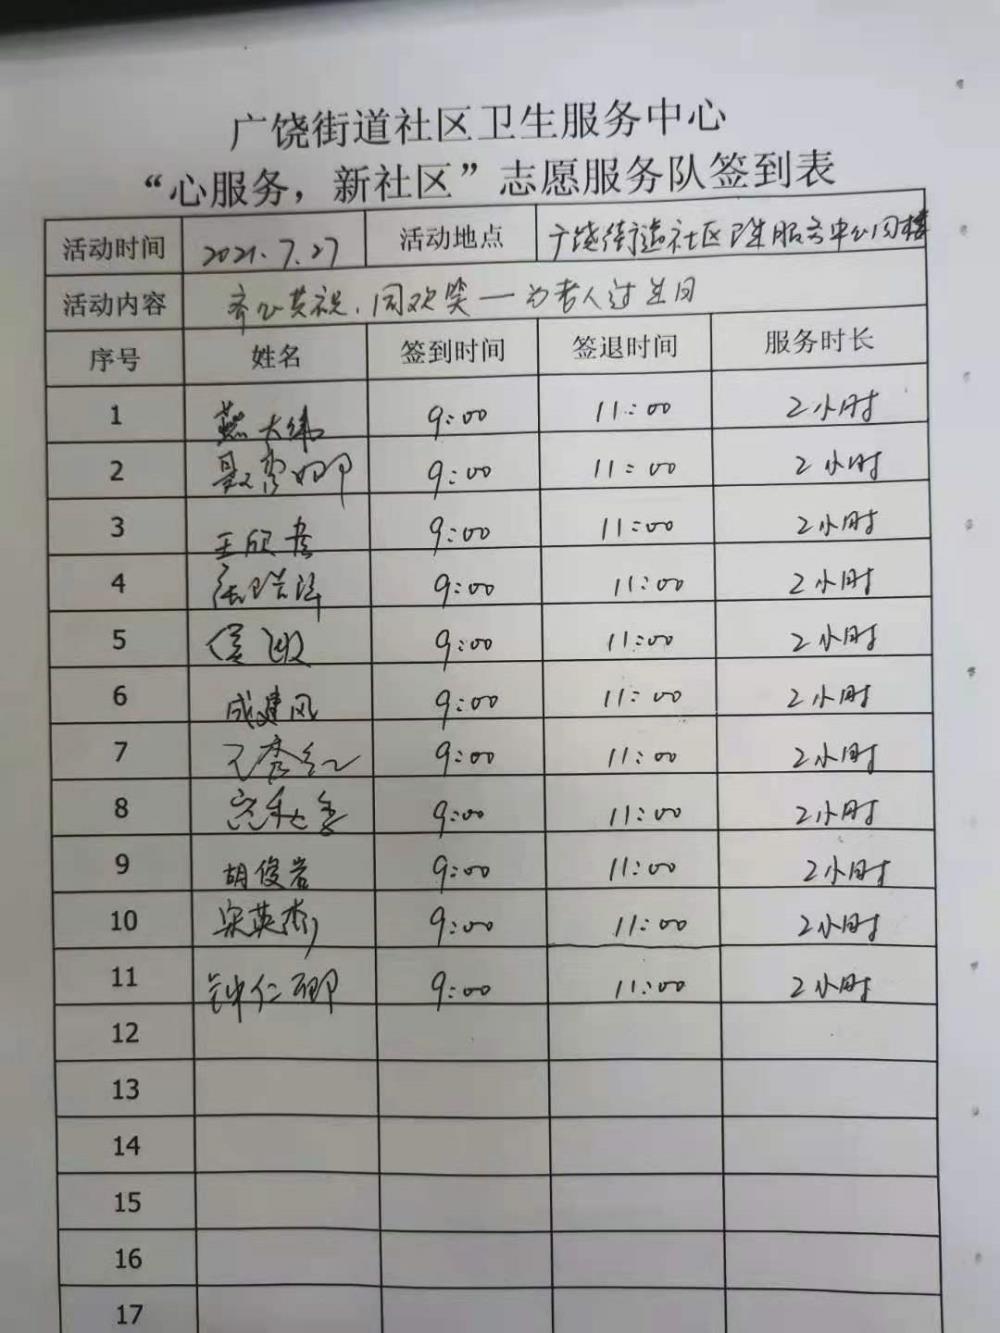 广饶街道社区卫生服务中心
“心服务，新社区”志愿服务队签到表
活动时间 2021.7.27 活动地点 广饶街道社区卫生服务中心门楼
活动内容 齐心共祝，同欢笑—为老人过生日
序号 姓名 签到时间 签退时间 服务时长
1 燕大伟 9:00 11:00 2小时
2 9:00 11:00 2小时
3 王欣彦 9:00 11:00 2小时
4 9:00 11:00 2小时
5 9:00 11:00 2小时
6 成建风 9:00 11:00 2小时
7 9:00 11:00 2小时
8 9:00 11:00 2小时
9 胡俊岩 9:00 11:00 2小时
10 宋英杰 9:00 11:00 2小时
11 钟仁卿 9:00 11:00 2小时
12
13
14
15
16
17